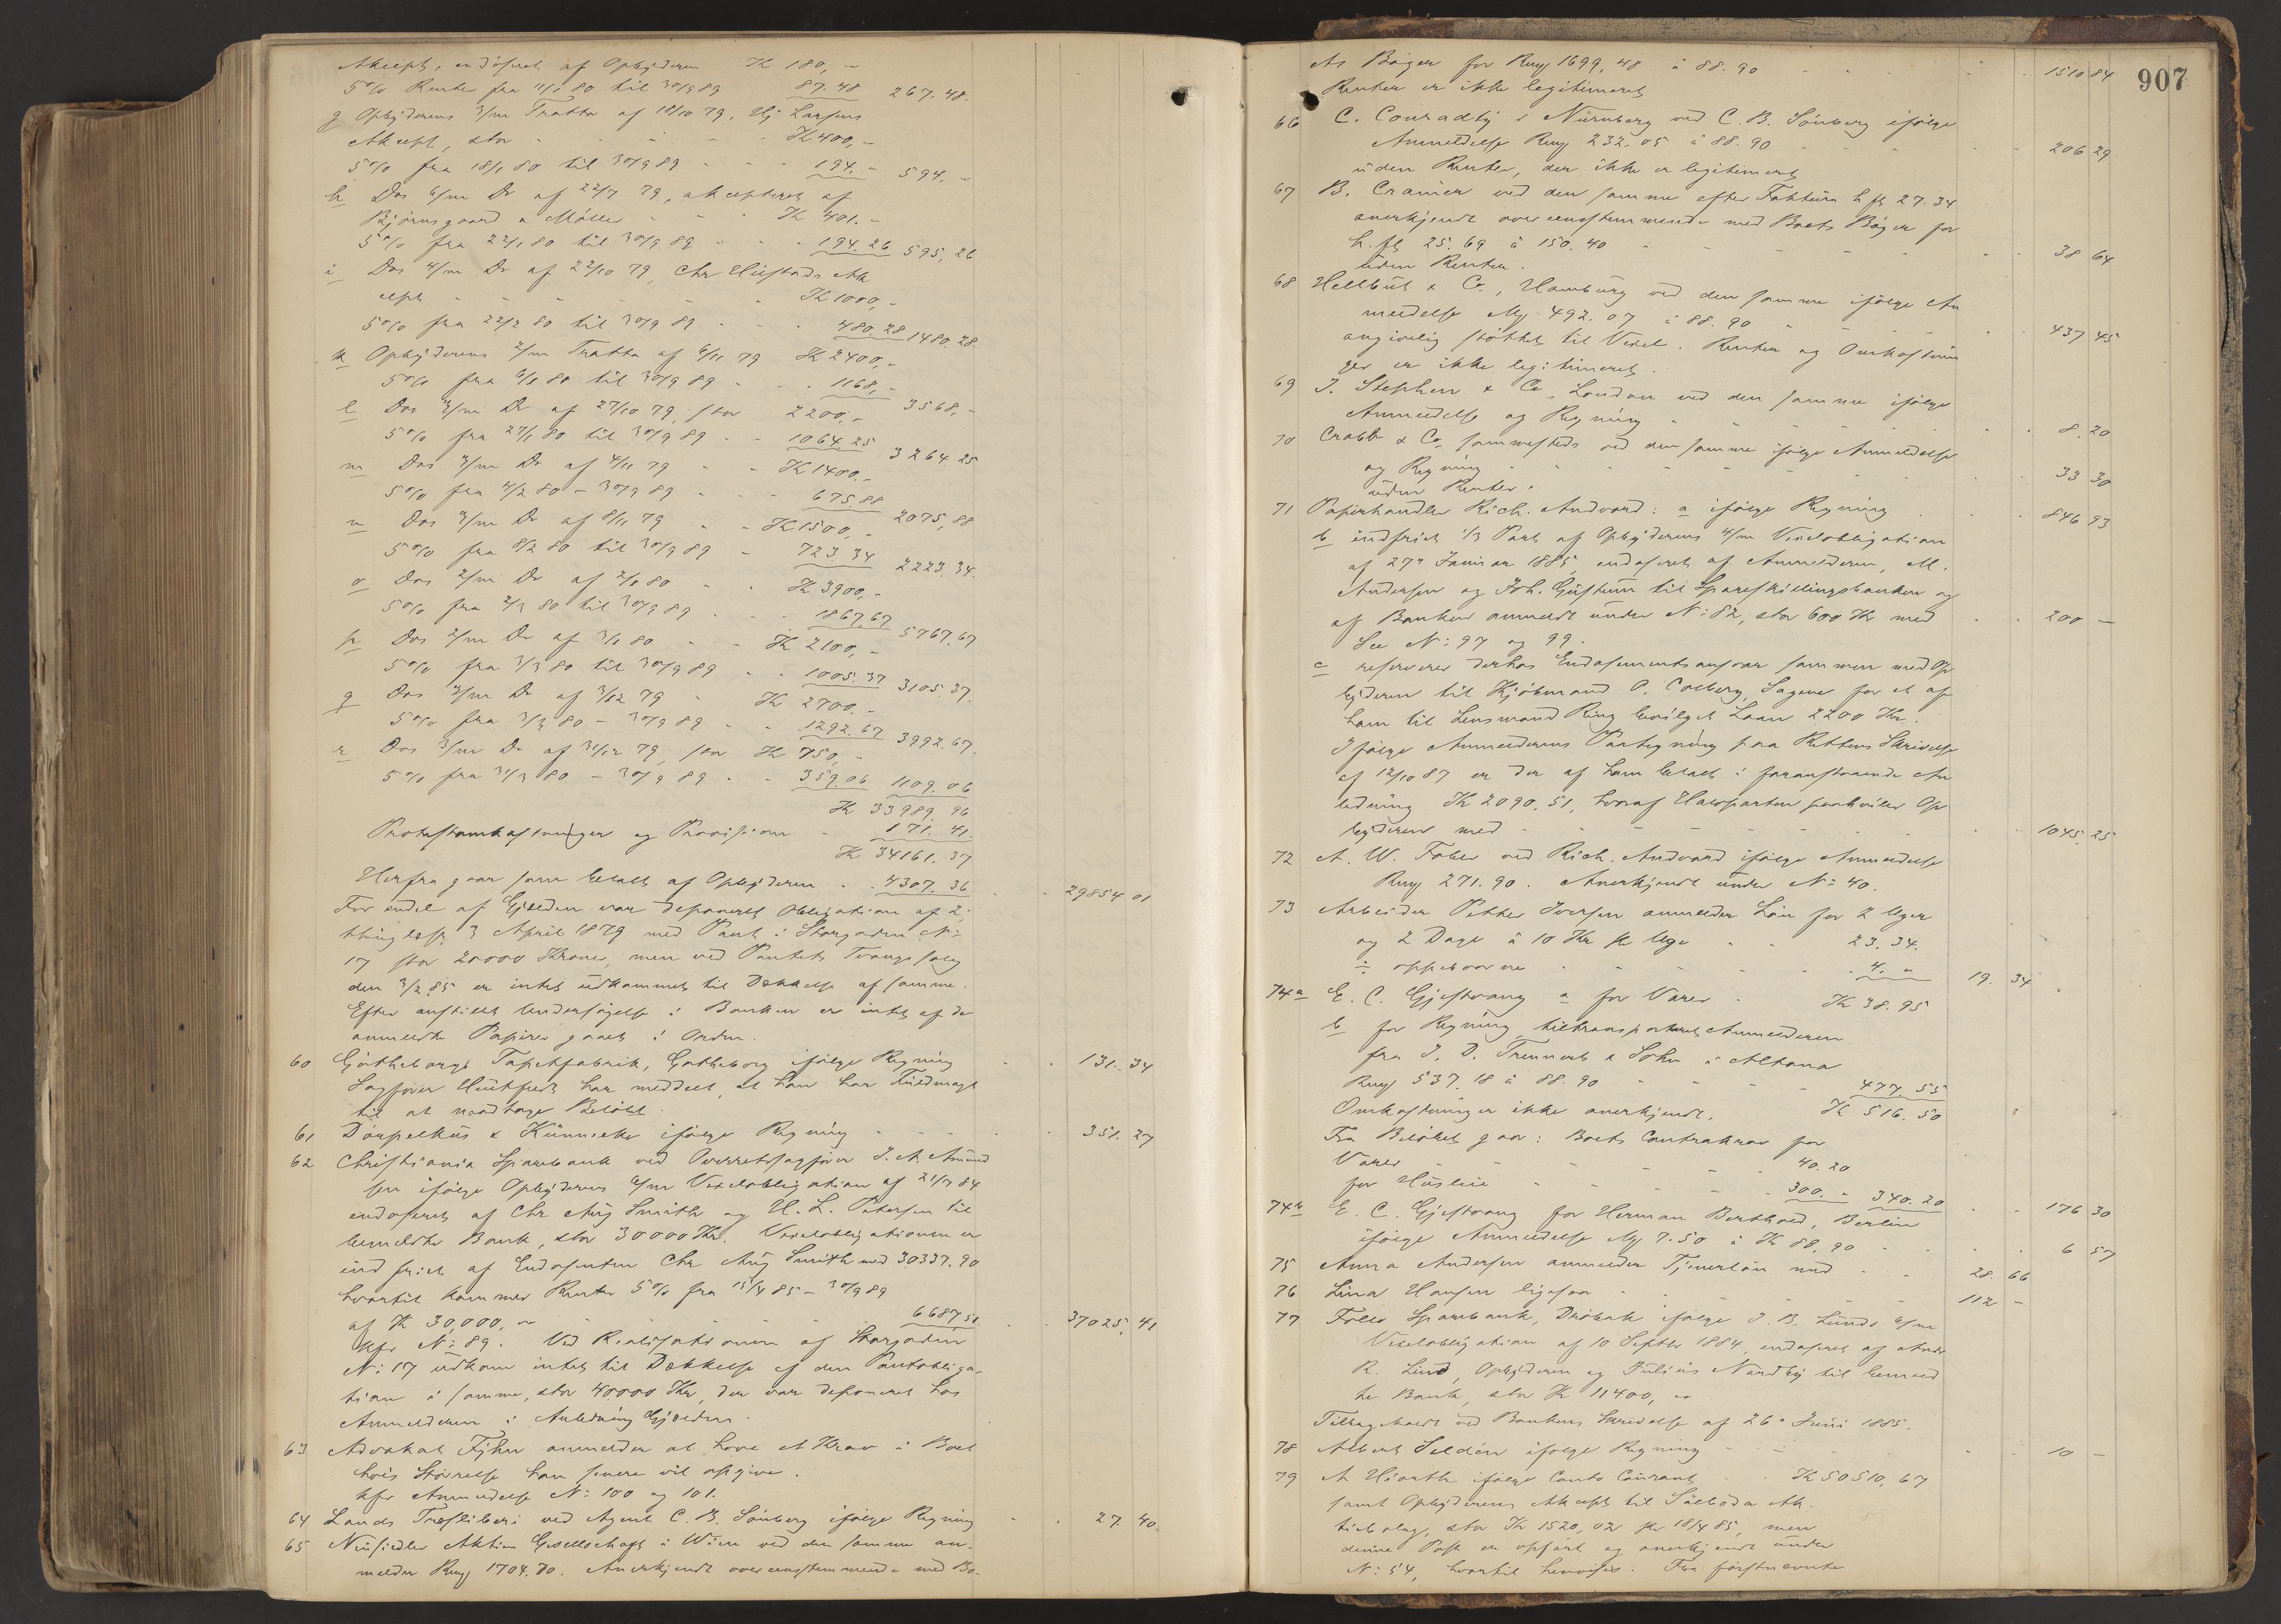 Akcept, endosseret af Opbyderen Kr 180, "
5% Renter fra 11/1 80 til 30/9 89 87.48 267.48.
g Opbyderens 3/m Tratta af 18/10 79, Hj. Larsens
Akcept, stor - - - Kr 400, -
5% fra 18/1 80 til 30/9 89 - - - 194. - 594, -
h Dos 6/m Do af 22/7 79, akcepteret af
Bjørnsgaard & Møller - - - Kr 401. -
5% fra 22/1 80 til 30/9 89 - - - 194.26 595,26
i Dos 4/m Do af 22/10 79, Chr Hustads Ak
cept - - - - Kr 1000, -
5% fra 22/2 80 til 30/9 89 - - - 480.28 1480.28
k Opbyderens 2/m Tratta af 6/11 79 Kr 2400, -
5% fra 6/1 80 til 30/9 89 - - - 1168, - 3568, -
l Dos 3/m Do af 27/10 79, stor 2200, -
5% fra 27/1 80 til 30/9 89 - - 1064.25 3264.25
m Dos 3/m Do af 4/11 79 - - Kr 1400. -
5% fra 4/2 80 - 30/9 89 - - - 675.88 2075,88
n Dos 3/m Do af 8/11 79 - - Kr 1500, -
5% fra 8/2 80 til 30/9 89 - 723.34 2223.34.
o Dos 2/m Do af 2/1 80 - - Kr 3900, -
5% fra 2/3 80 til 30/9 89 - - - 1867,67 5767.67
p Dos 2/m Do af 3/1 80 - - Kr 2100, -
5% fra 3/3 80 til 30/9 89 - - 1005.37 3105.37.
q Dos 3/m Do af 3/12 79 - Kr 2700. -
5% fra 3/3 80 - 30/9 89 - - 1292.67 3992.67.
r Dos 3/m Do af 31/12 79, stor Kr 750, -
5% fra 31/3 80 - 30/9 89 - - 359.06 1109.06
Kr 33989.96
Protestomkostninger og Provision - 171.41.
Kr 34161.37
Herfra gaar som betalt af Opbyderen - 4307.36 - - 29854 01
For endel af Gjælden var deponeret Obligation af 2,
thinglæst 3 April 1879 med Pant i Storgaden No
17 stor 20000 Kroner, men ved Pantets Tvangssalg
den 3/2 85 er intet udkommet til Dækkelse af samme.
Efter anstillet Undersøgelse i Banken er intet af de
anmeldte Papirer gaaet i Orden.
60 Gøtheborgs Tapetfabrik, Gøtheborg ifølge Regning - - 131. 34
Sagfører Huitfeldt har meddelt, at han har Fuldmagt
til at modtage Beløbet.
61 Dörpelkus & Künnecke ifølge Regning - - - 351. 27
62 Christiania Sparebank ved Overretssagfører J. A. Amund
sen ifølge Opbyderens 6/m Vexelobligation af 21/7 84
endosseret af Chr Aug Smith og H. L. Petersen til
bemeldte Bank, stor 30000 Kr. Vexelobligationen er
indfriet af Endosenten Chr Aug Smith med 30337.90
hvortil kommer Renter 5% fra 15/4 85 - 30/9 89
af Kr 30,000, " - - - - 6687,51 - - 37025, 41
Kfr No 89. Ved Realisationen af Storgaden
No 17 udkom intet til Dækkelse af den Pantobliga-
tion i samme, stor 40000 Kr, der var deponeret hos
Anmelderen i Anledning Gjælden.
63 Advokat Fyhn anmelder at have et Krav i Boet
hvis Størrelse han senere vil opgive.
kfr Anmeldelse No 100 og 101.
64 Lands Træsliberi ved Agent C. B. Sönberg ifølge Regning - - 27. 40.
65 Neusiedler Aktien Gesellschaft i Wien ved den samme an-
melder Rmf 1704.70. Anerkjendt overensstemmende med Bo-
907
ets Bøger for Rmf 1699,48 à 88.90 - - - 1510 84
Renter er ikke legitimeret
66 C. Conradty i Nürnberg ved C. B. Sönberg ifølge
Anmeldelse Rmf 232,05 à 88.90 - - - 206 29
uden Renter, der ikke er legitimeret
67 B. Cranier ved den samme efter Faktura h fl 27.34
anerkjendt overensstemmende med Boets Bøger for
h. fl 25.69 à 150.40 - - - - 38 64
uden Renter.
68 Hellbut & Co., Hamburg ved den samme ifølge An
meldelse Mf 492.07 à 88.90 - - - 437 45
angivelig støttet til Vexel. Renter og Omkostnin
ger er ikke legitimeret.
69 J. Stephen & Co, London ved den samme ifølge
Anmeldelse og Regning - - - - 8. 20
70 Crabb & Co, sammesteds ved den samme ifølge Anmeldelse
og Regning - - - - 33 30
uden Renter.
71 Papirhandler Rich. Andvord: a ifølge Regning - - - 846 93
b indfriet 1/3 Part af Opbyderens 4/m Vexelobligation
af 27de Januar 1885, endosseret af Anmelderen, M.
Andersen og Joh. Gustum til Spareskillingsbanken og
af Banken anmeldt under No 82, stor 600 Kr med - - 200 -
See No: 97 og 99.
c reserverer derhos Endosementsansvar sammen med Op
byderen til Kjøbmand O. Colberg, Sagene for et af
ham til Lensmand Ring bevilget Laan 2200 Kr.
Ifølge Anmelderens Paategning paa Rettens Skrivelse
af 12/10 87 er der af ham betalt i foranstaaende An
ledning Kr 2090.51, hvoraf Halvparten paahviler Op
byderen med - - - - - 1045, 25
72 A. W. Faber ved Rich. Andvord ifølge Anmeldelse
Rmf 271.90. Anerkjendt under No 40.
73 Arbeider Petter Iversen anmelder Løn for 2 Uger
og 2 Dage à 10 Kr pr Uge - - 23.34.
÷ oppebaarne - - - - 4. - 19. 34
74a E. C. Gjestvang a for Varer - Kr 38.95
b for Regning tiltransporteret Anmelderen
fra J. D. Trennert & Sohn i Altona
Rmf 537,18 à 88.90 - - - 477.55
Omkostninger ikke anerkjendt. Kr 516.50
Fra Beløbet gaar: Boets Contrakrav for
Varer - - - - 40.20
for Husleie - - - - 300. - 340.20 - - 176 30
74b E. C. Gjestvang for Herman Berthold, Berlin
ifølge Anmeldelse Mf 7.50 à Kr 88,90 - - - 6 57
75 Anna Andersen anmelder Tjenerløn med - - 28. 66
76 Lina Hansen ligesaa - - - - 112 -
77 Follo Sparebank, Drøbak ifølge J. B. Lunds 6/m
Vexelobligation af 10 Septbr 1884, endosseret af Andr
R. Lind, Opbyderen og Julius Nordby til bemeld
te Bank, stor Kr 11400, "
Tilbagekaldt ved Bankens Skrivelse af 26de Juni 1885.
78 Albert Seldén ifølge Regning - - - - 10 -
79 A Hiorth ifølge Conto Courant - - Kr 50510,67
samt Opbyderens Akcept til Sälboda Ak
tiebolag, stor Kr 1520,02 pr 18/4 85, men
denne Post er opført og anerkjendt under
No: 54, hvortil henvises. Fra førstnævnte